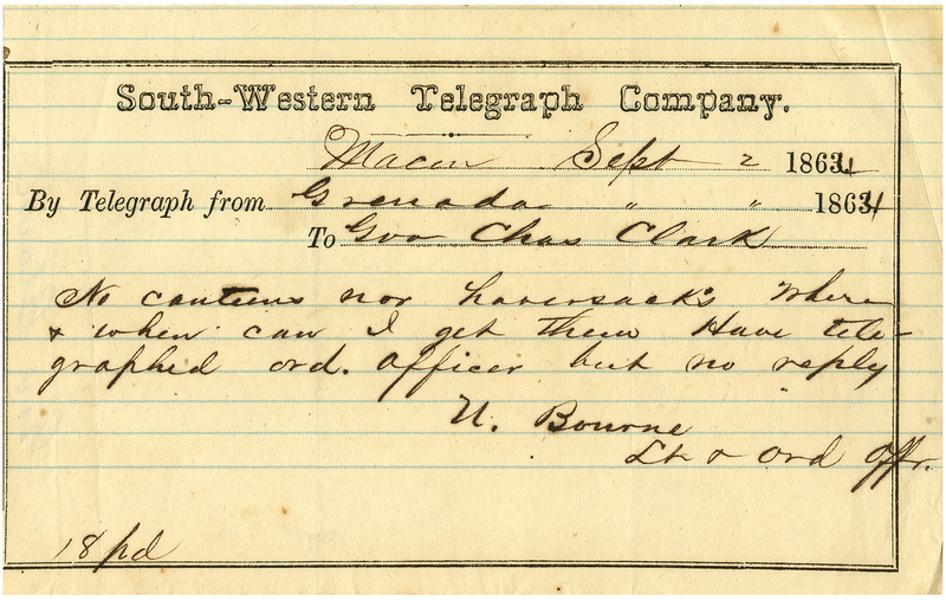 South-Western Telegraph Company.
Macon Sept 2 1864
By Telegraph from Grenada " " 1864
To Gov Chas Clark
No canteens nor haversack's where
& when can I get them Have tele-
graphed ord. officer but no reply
U. Bourne
Lt & Ord Offr.
18 pd